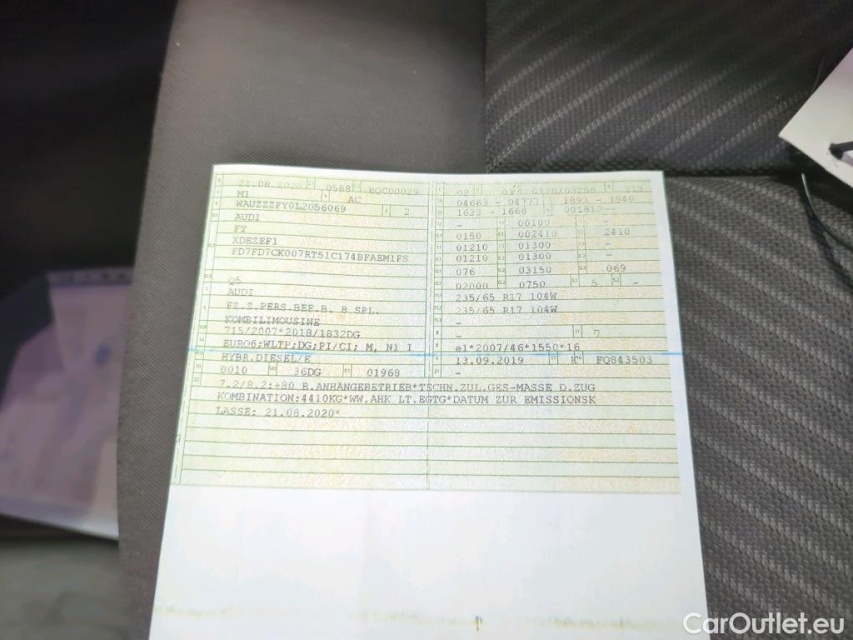 21.08.20 0588 BQCU0029
M1 AC
WAUZZZFY0L2056069 2
AUDI
FY
XDEZEF1
FD7FD7CK007RT51C174BFAEM1FS
Q5
AUDI
FZ.Z.PERS.BEF.B. 8 SPL.
KOMBILIMOUSINE
715/2007*2018/1832DG
EURO6;WLTP;DG;PI/CI; M, N1 I
HYBR.DIESEL/E
0010 36DG 01968
04663 - 04777
1623 - 1668
- 00100 -
0150 002410 2410
01210 01300 -
01210 01300 -
076 03150 069
02000 0750 5 -
235/65 R17 104W
235/65 R17 104W
-
- 7
e1*2007/46*1550*16
13.09.2019 K FQ843503
7.2/8.2:+80 B.ANHÄNGEBETRIEB*TECHN.ZUL.GES-MASSE D.ZUG
KOMBINATION:4410KG*WW.AHK LT.EGTG*DATUM ZUR EMISSIONSK
LASSE: 21.08.2020*
CarOutlet.eu